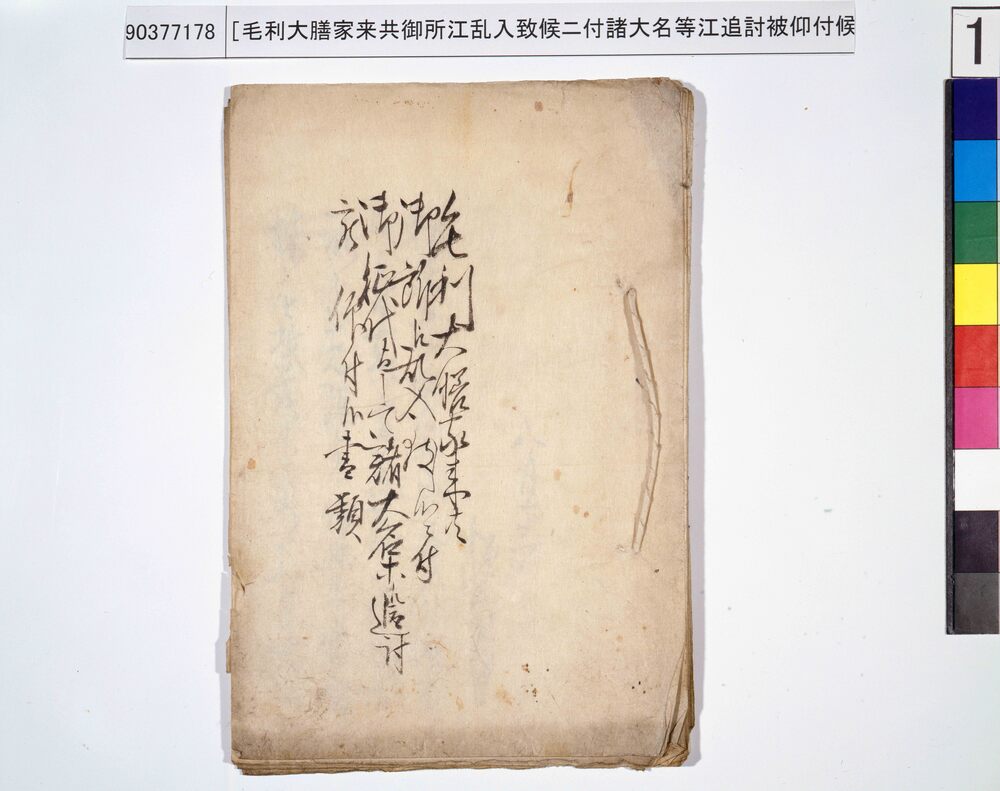 90377178
[毛利大膳家来共御所江乱入致候ニ付諸大名等江追討被仰付候
1
毛利大膳家来共
御所江乱入致候ニ付
御
諸大名等追討
被 仰付候書類